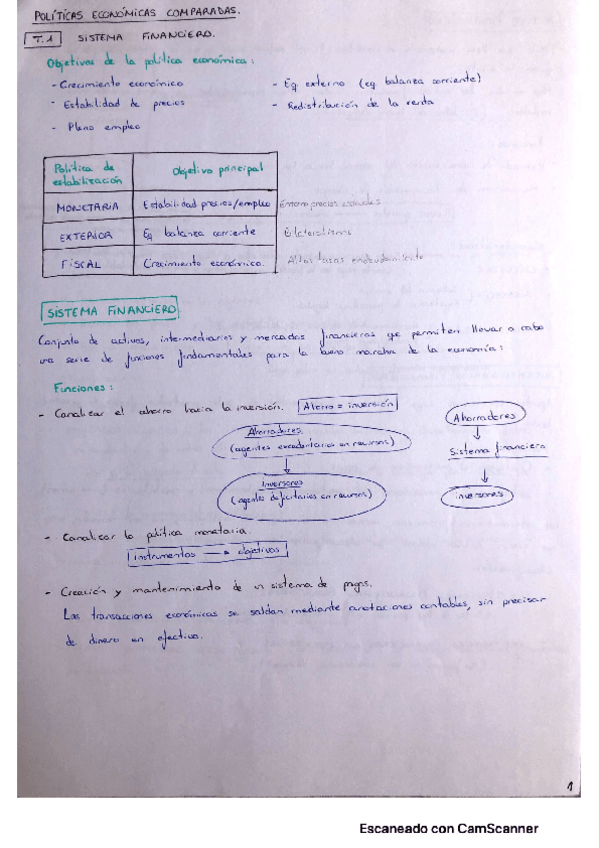 POLÍTICAS ECONÓMICAS COMPARADAS.
T.1 SISTEMA FINANCIERO.
Objetivos de la política económica:
- Crecimiento económico
- Estabilidad de precios
- Pleno empleo
- Eq externo (eq balanza corriente)
- Redistribución de la renta
Política de estabilización Objetivo principal
MONETARIA Estabilidad precios/empleo
EXTERIOR Eq balanza corriente Bilateralismo
FISCAL Crecimiento económico. Altas tasas endeudamiento
SISTEMA FINANCIERO
Conjunto de activos, intermediarios y mercados financieros que permiten llevar a cabo
una serie de funciones fundamentales para la buena marcha de la economía:
Funciones:
- Canalizar el ahorro hacia la inversión. Ahorro = inversión
Ahorradores
(agentes excedentarios en recursos)
Inversores
(agentes deficitarios en recursos)
Ahorradores
Sistema financiero
inversores
- Canalizar la política monetaria.
instrumentos → objetivos
- Creación y mantenimiento de un sistema de pagos.
Las transacciones económicas se saldan mediante anotaciones contables, sin precisar
de dinero en efectivo.
1
Escaneado con CamScanner